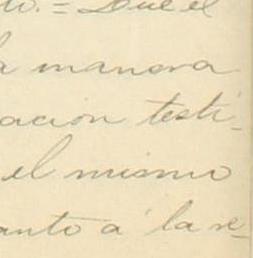 to. = Que el
la manera
ación testi-
el mismo
anto á la re-